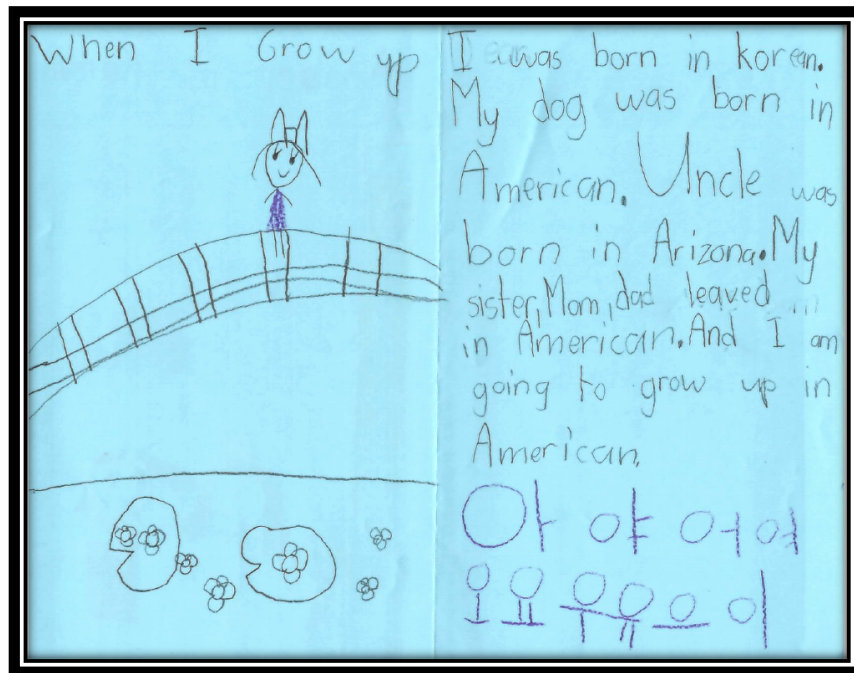 When I Grow up
I was born in korean.
My dog was born in
American. Uncle was
born in Arizona. My
sister, Mom, dad leaved
in American. And I am
going to grow up in
American.
아 야 어 여
오 요 우 유 으 이